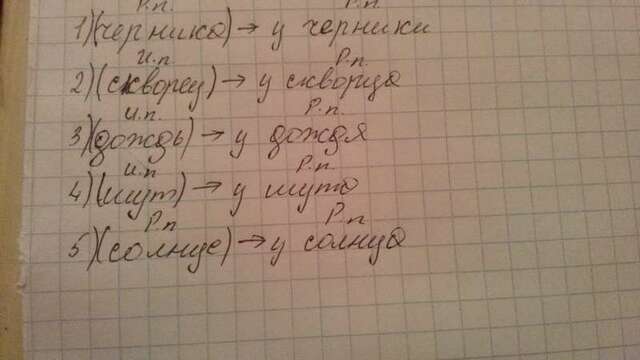 Р.п. Р.п.
1)(черника) → у черники
И.п Р.п
2)(скворец) → у скворца
И.п. Р.п.
3)(дождь) → у дождя
И.п Р.п.
4)(шут) → у шута
Р.п Р.п
5)(солнце) → у солнца